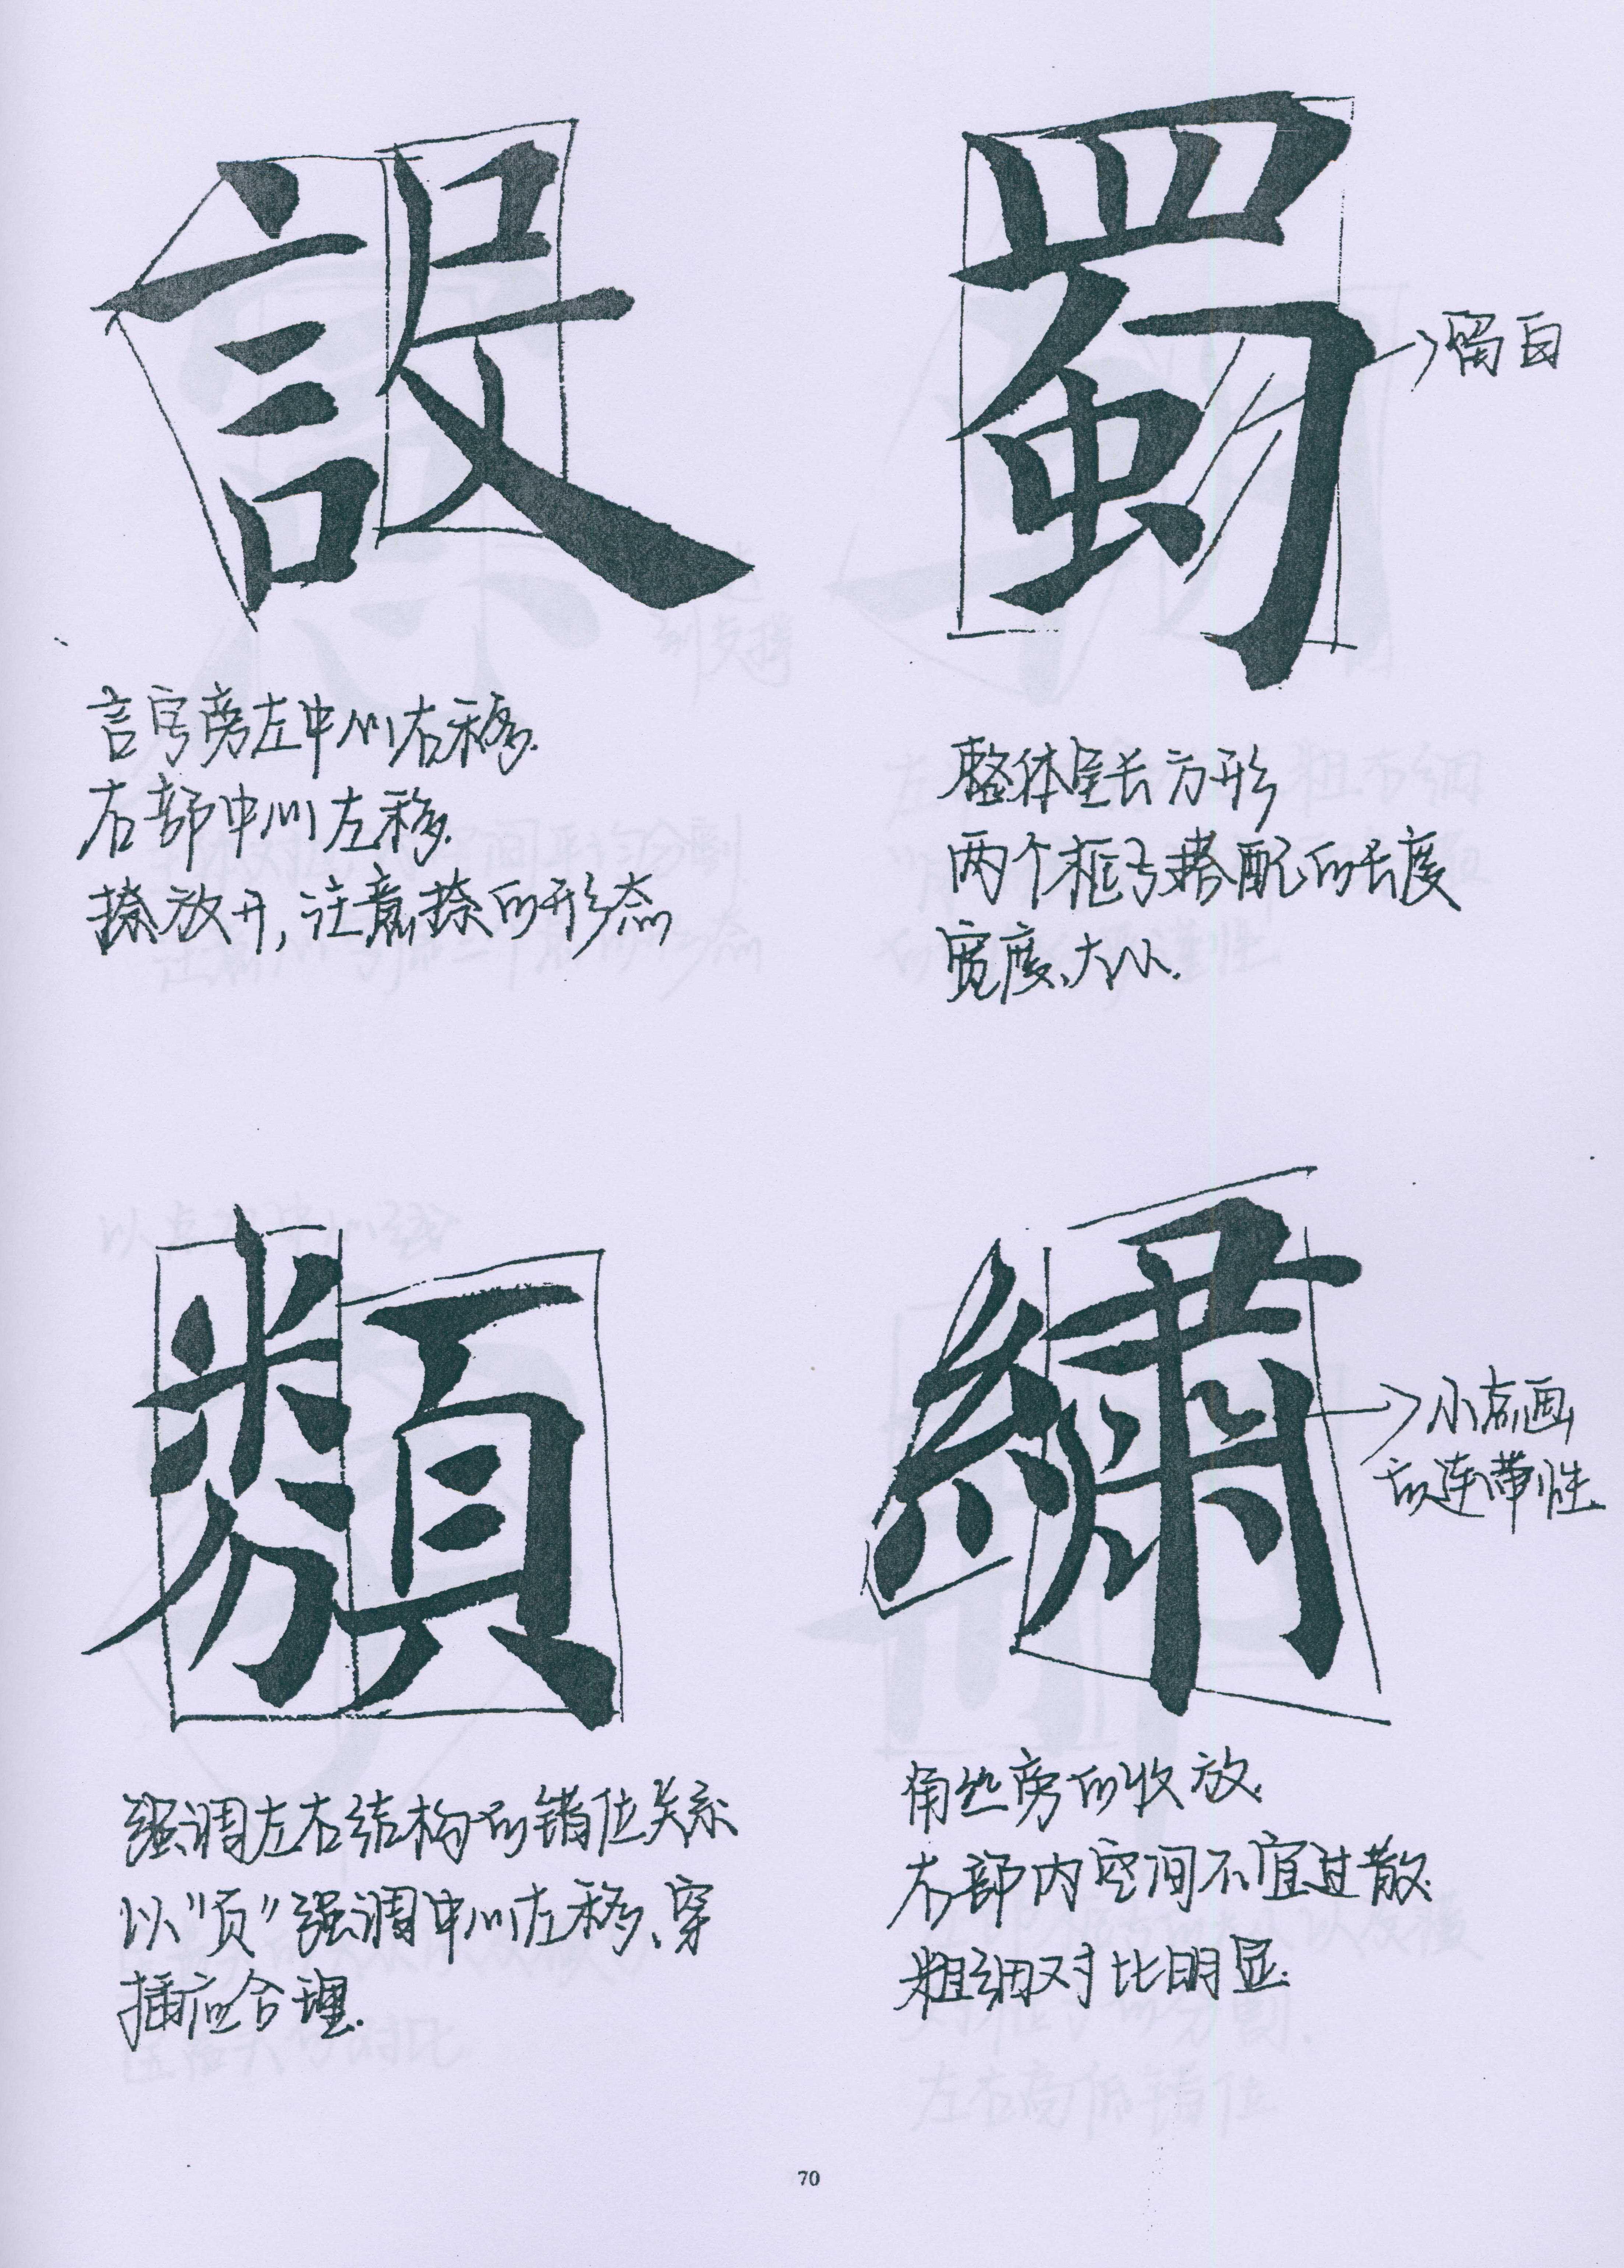 設
言字旁左中心右移.
右部中心左移.
捺放开,注意捺的形态
蜀
留白
整体呈长方形
两个框与搭配的长度
宽度、大小.
類
强调左右结构的错位关系
以“页”强调中心左移、穿
插应合理.
繡
小点画
的连带性.
角丝旁的收放.
右部内空间不宜过散.
粗细对比明显.
70